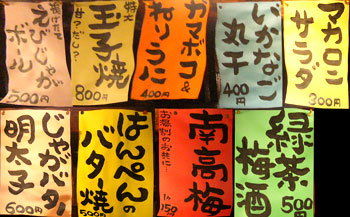 マカロニ
サラダ
300円
いかなご
丸干
400円
カマボコ&
ねりうに
400円
特大
玉子焼
甘?だし?
800円
揚げたて
えびじゃが
ボール
500円
緑茶
梅酒
500円
南高梅
お惣別のお共に
1ヶ
150
はんぺんの
バター焼
500円
じゃがバター
明太子
600円